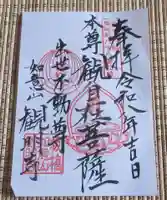 奉拝 令和 年吉日
本尊 観自在菩薩
出世不動尊
如意山 観明寺